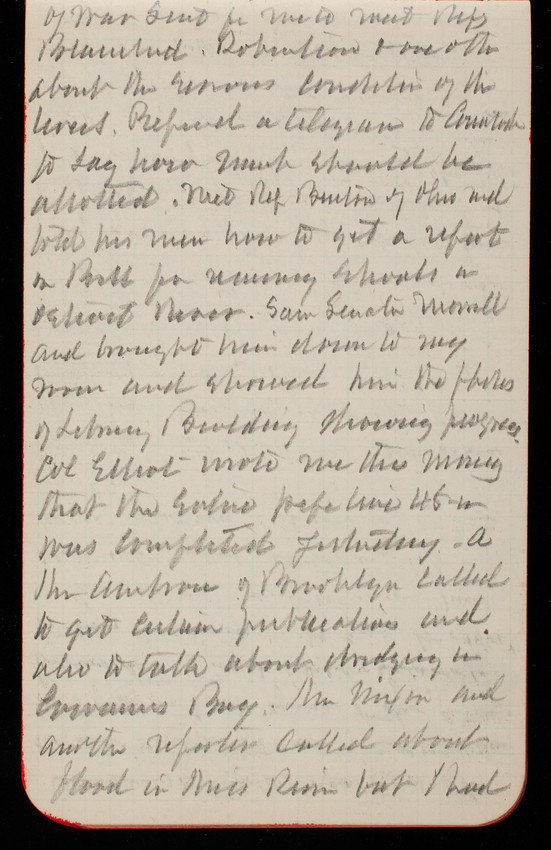 of War sent for me to meet Reps
Blanchard. Robertson & one other
about the serious condition of the
levees. Prepared a telegram to Comstock
to say how much should be
allotted. Met Rep of Ohio and
told his man how to get a report
on Bill for removing shoals in
Detroit River. Saw Senator Morrill
and brought him down to my
room and showed him the photos
of Library Building showing progress.
Col Elliot wrote me this morning
that the entire pipe line 48 in
was completed yesterday. A
Mr of Brooklyn called
to get certain publications and
also to talk about dredging in
Gowanus Bay. Mr Nixon and
another reporter called about
flood in Miss River but I had